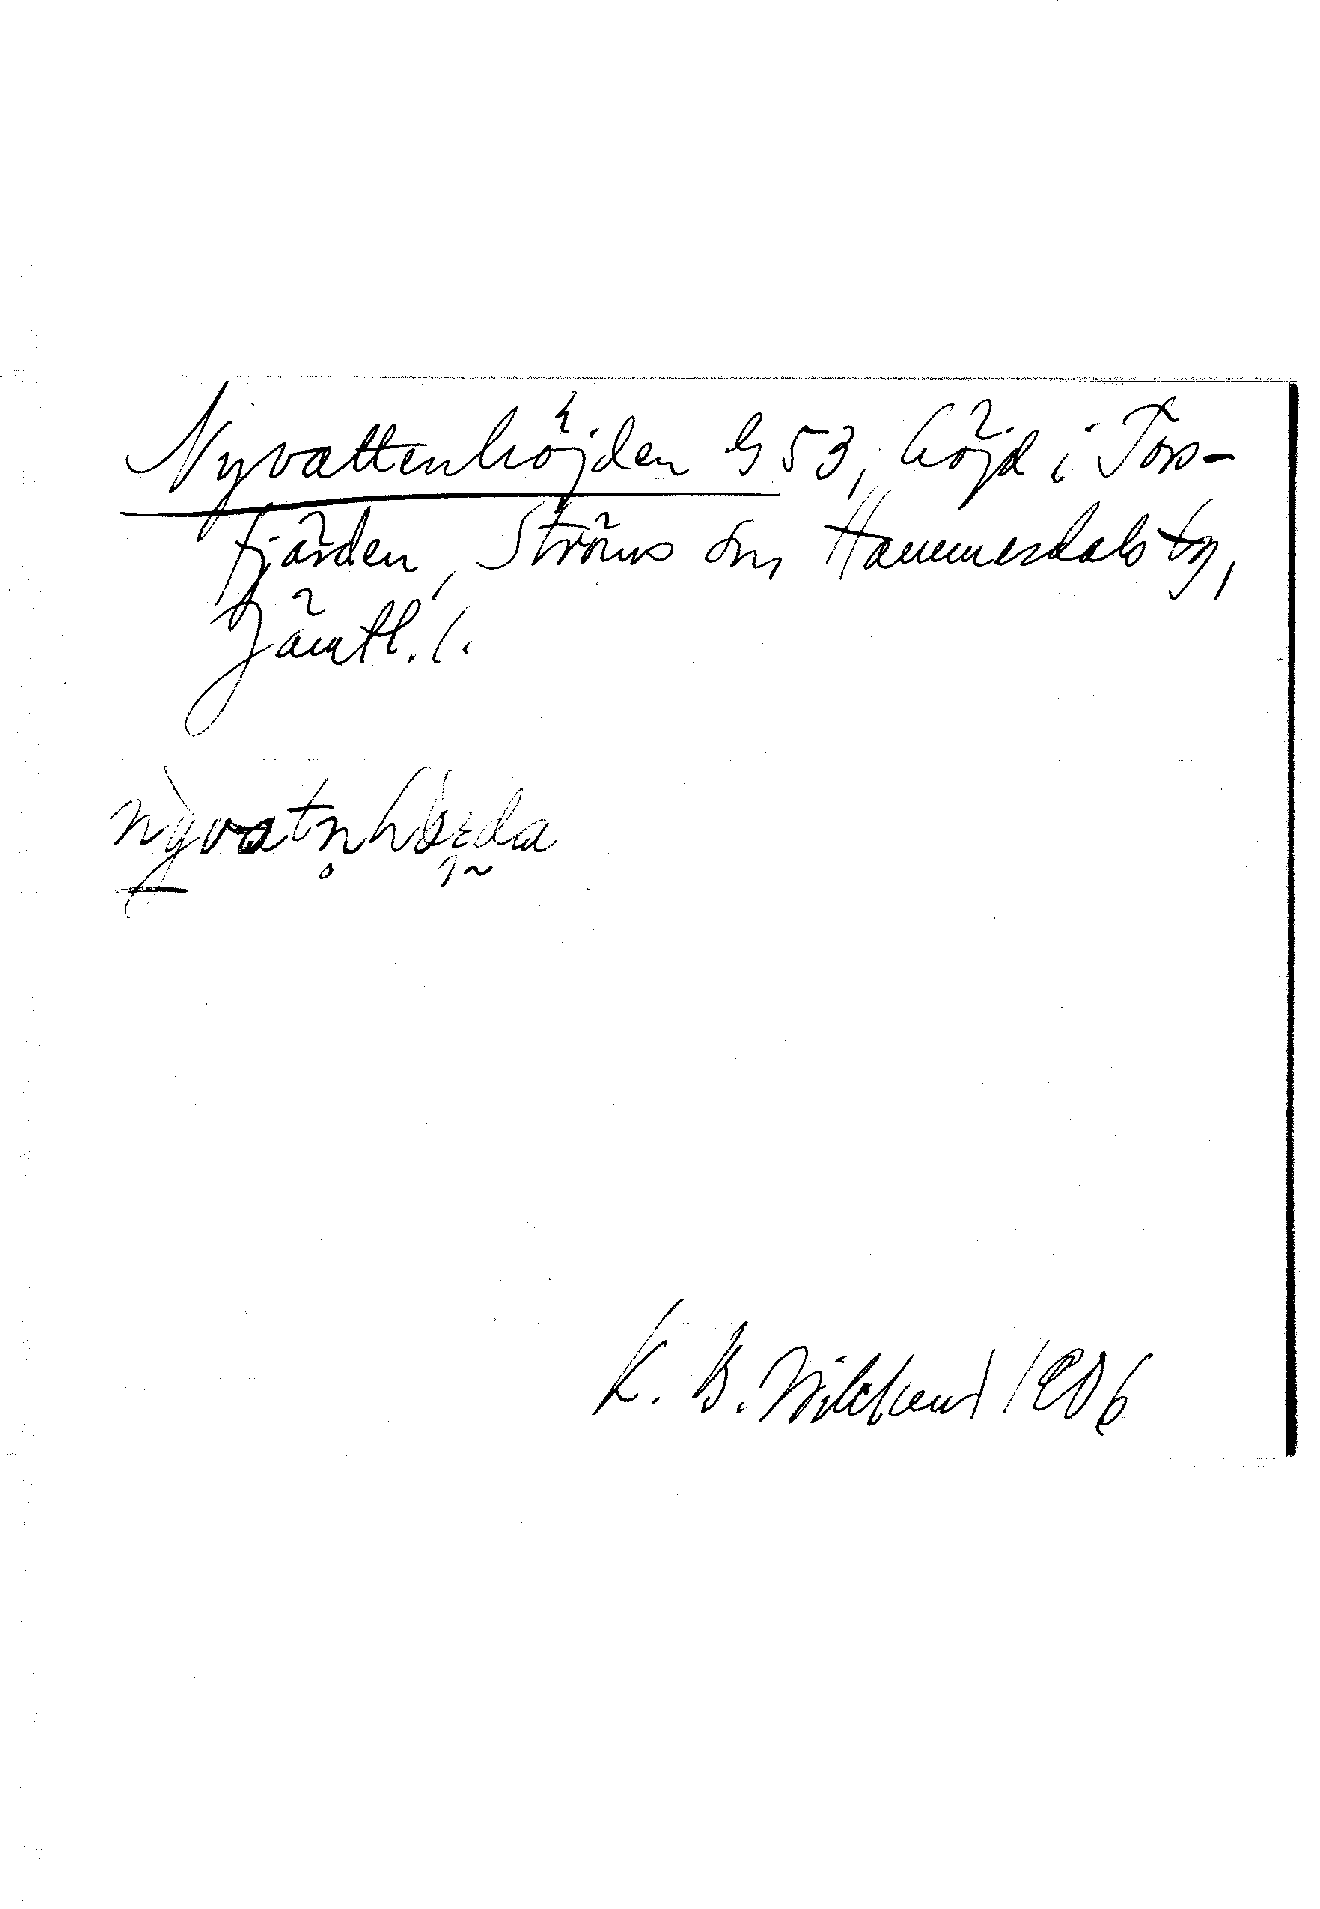 Nyvattenhöjden G 53, höjd i Tors-
fjärden, Ströms sn, Hammerdals tg,
Jämtl. l.
K. B. Wiklund 1906